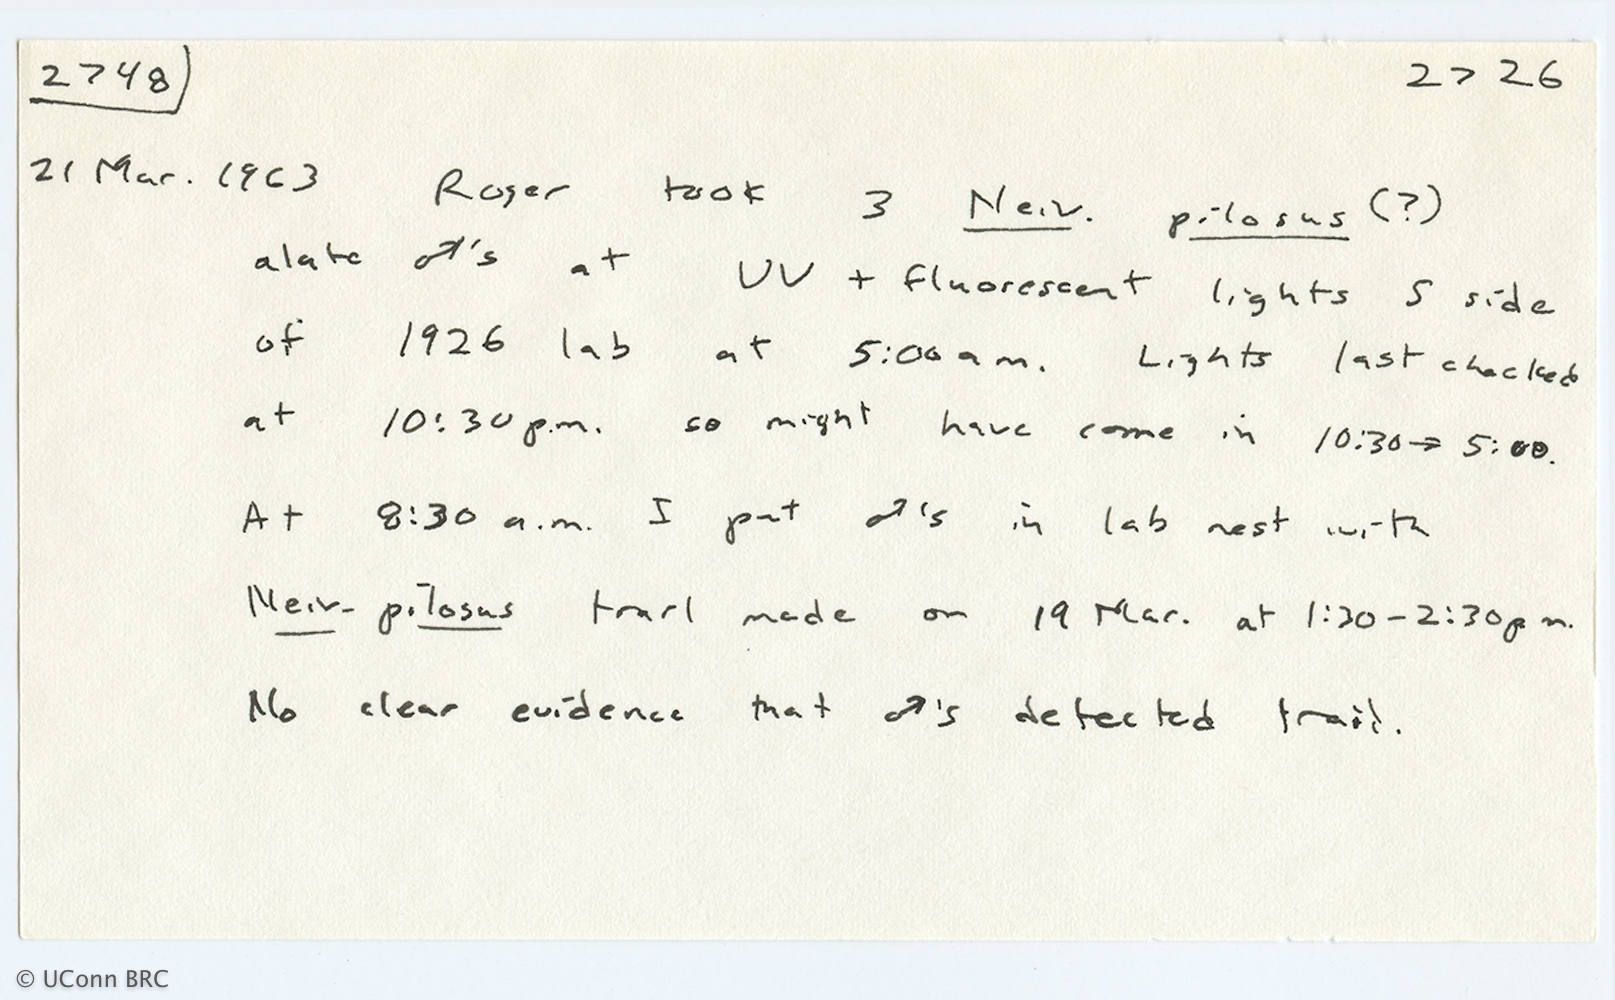 2748 2726
21 Mar. 1963 Roger took 3 Neiv. pilosus (?)
alate ♂'s at UV + fluorescent lights S side
of 1926 lab at 5:00 a.m. Lights last checked
at 10:30 p.m. so might have come in 10:30 → 5:00.
At 8:30 a.m. I put ♂'s in lab nest with
Neiv. pilosus trail made on 19 Mar. at 1:30 - 2:30 p.m.
No clear evidence that ♂'s detected trail.
© UConn BRC